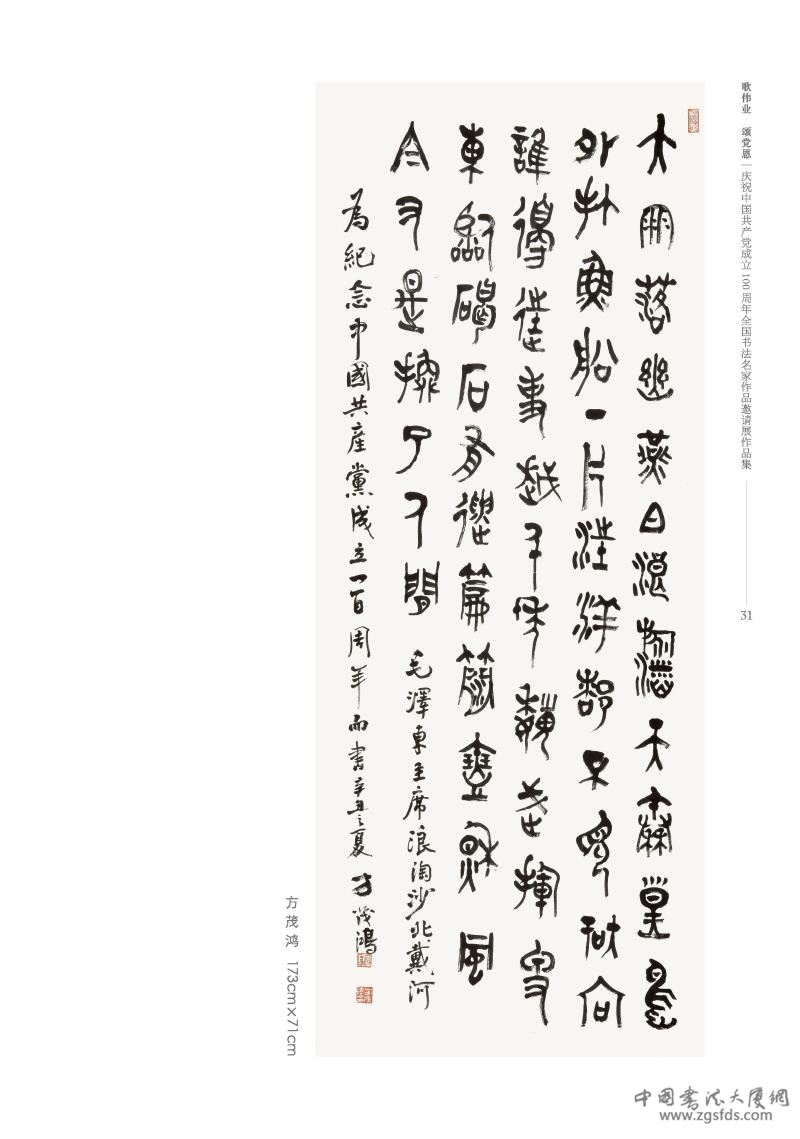 歌伟业 颂党恩 | 庆祝中国共产党成立100周年全国书法名家作品邀请展作品集
31
大雨落幽燕白浪滔天秦皇島
外打魚船一片汪洋都不見知向
誰邊往事越千年魏武揮鞭
東臨碣石有遺篇蕭瑟秋風
今又是換了人間 毛澤東主席浪淘沙北戴河
為紀念中國共産黨成立一百周年而書辛丑之夏 方茂鴻
方茂鸿 173cm×71cm
中国书法大厦网
www.zgsfds.com